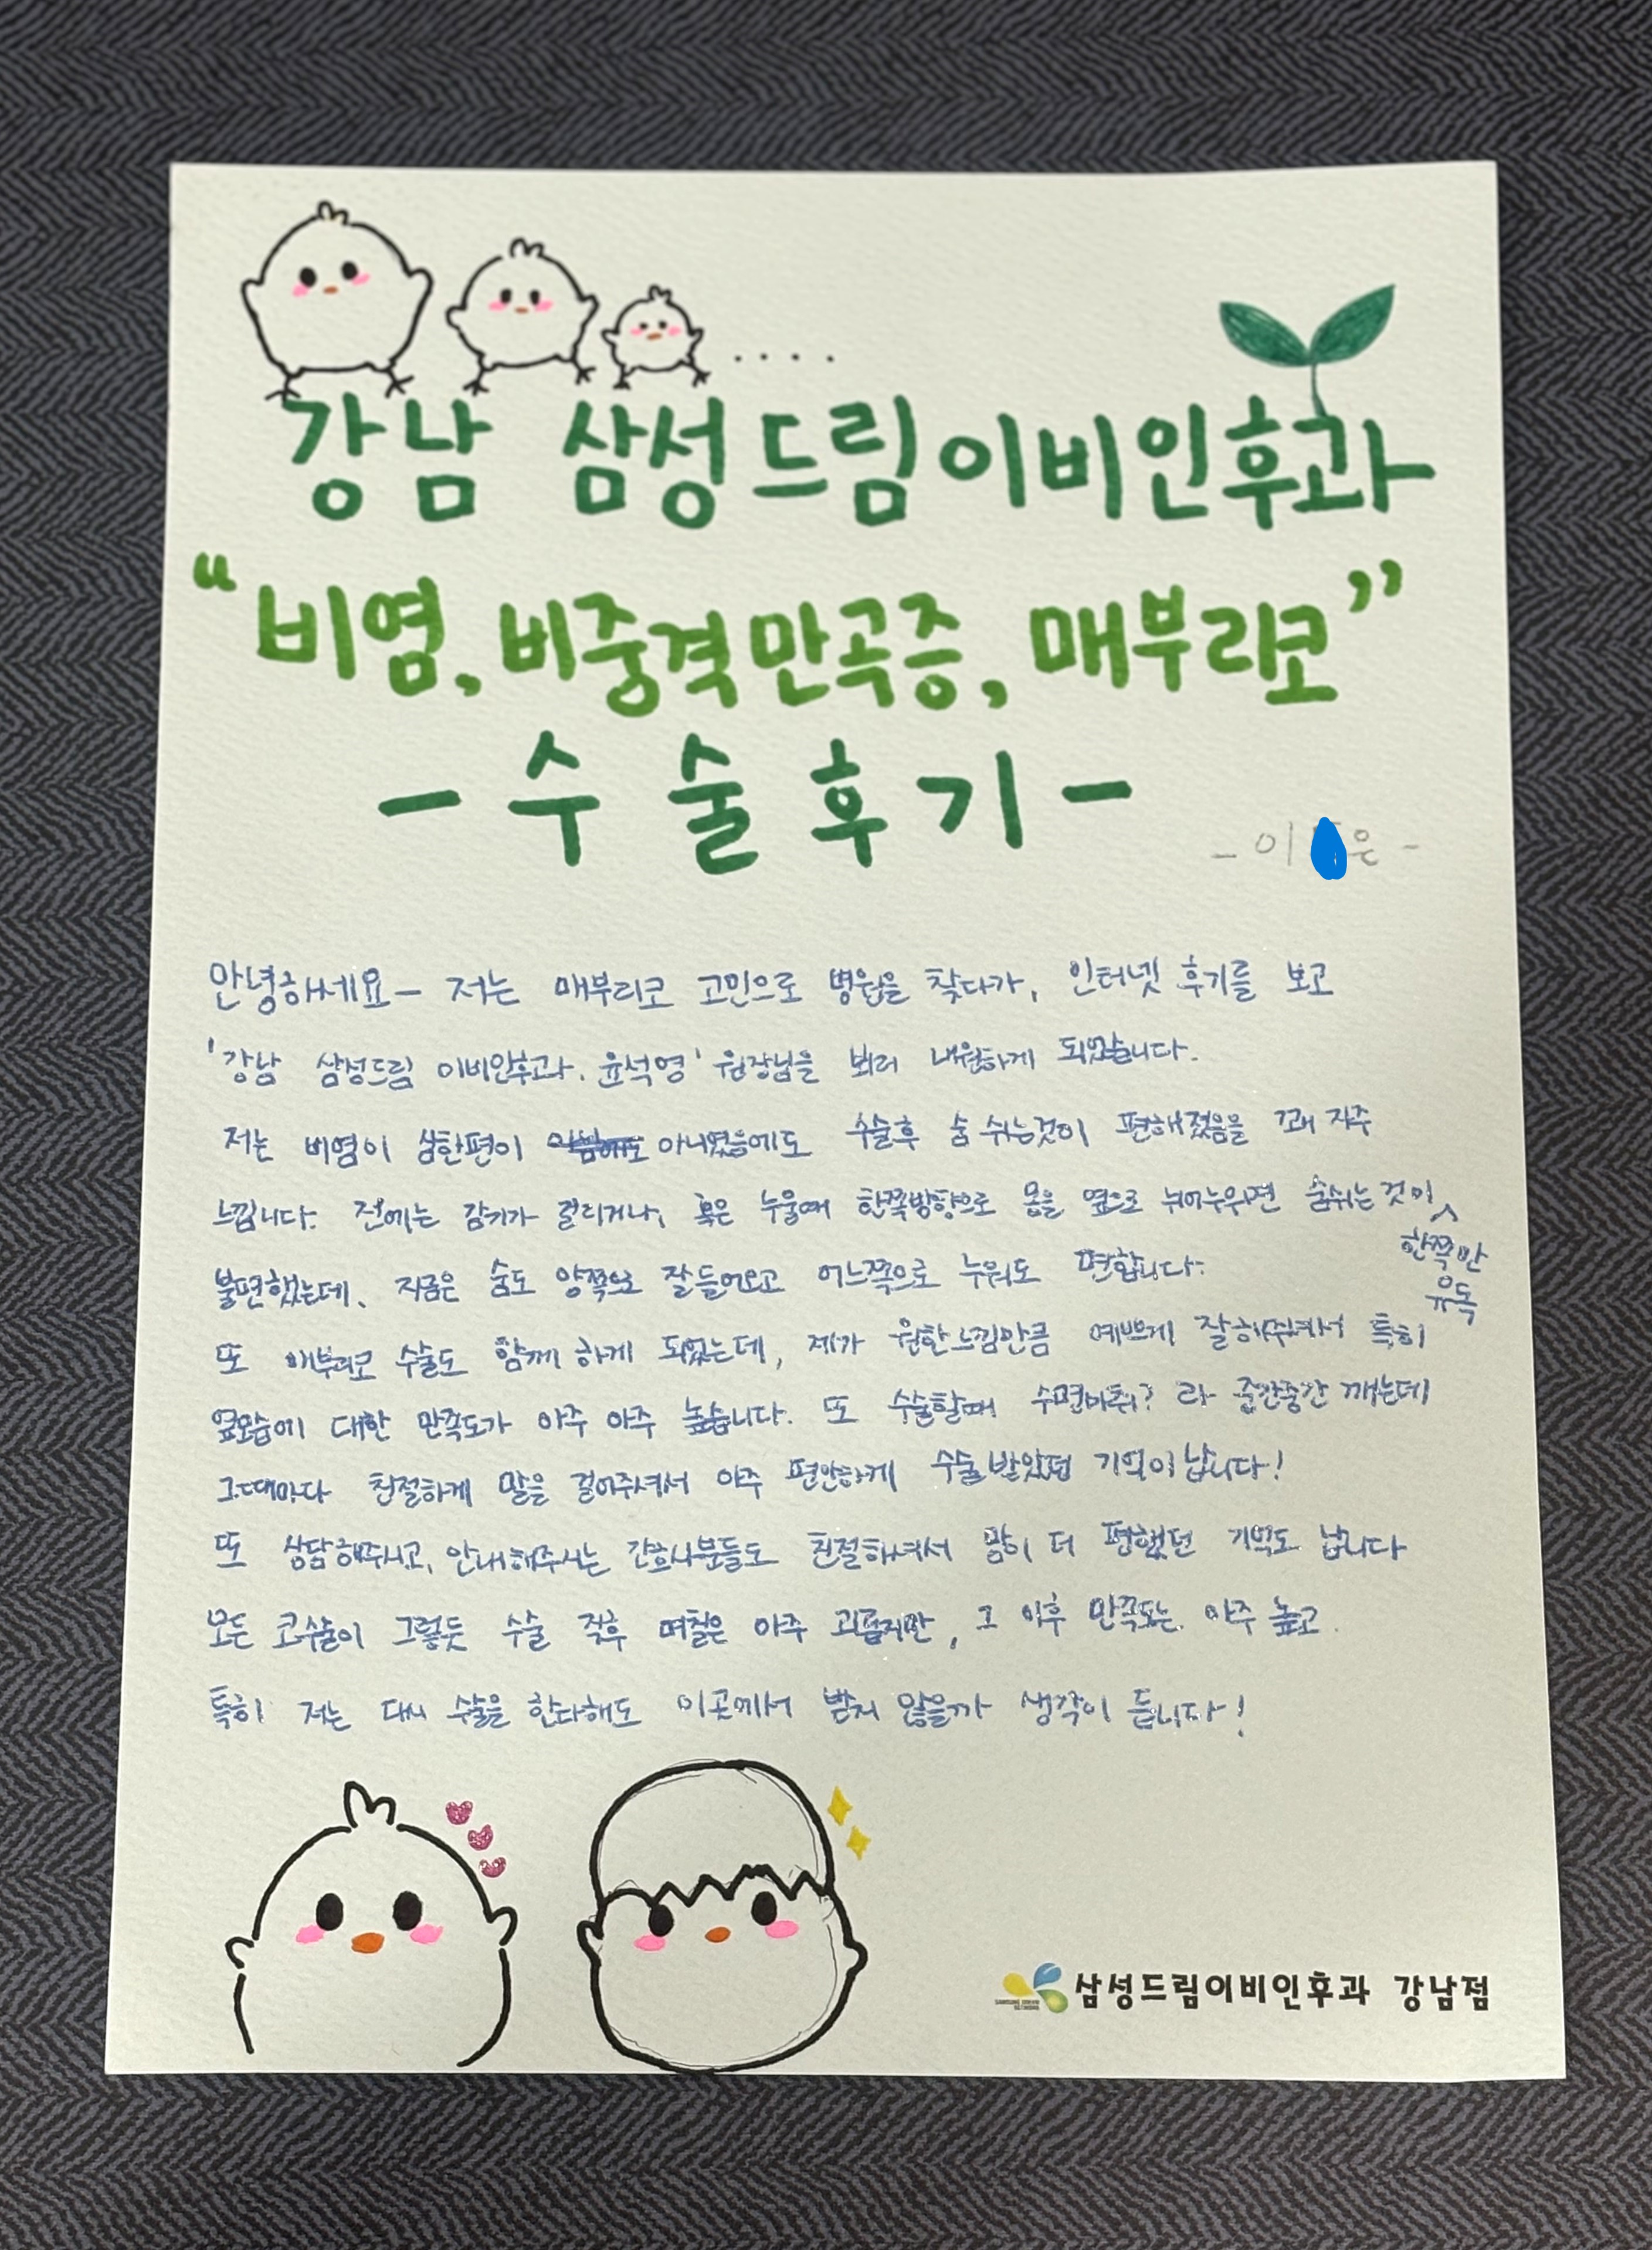 강남 삼성드림이비인후과
“비염, 비중격만곡증, 매부리코”
- 수술후기 -
- 이 은 -
안녕하세요 - 저는 매부리코 고민으로 병원을 찾다가, 인터넷 후기를 보고
'강남 삼성드림 이비인후과. 윤석영' 원장님을 뵈러 내원하게 되었습니다.
저는 비염이 심한편이 아니었음에도 수술후 숨 쉬는것이 편해졌음을 꽤 자주
느낍니다. 전에는 감기가 걸리거나, 혹은 누울때 한쪽방향으로 몸을 옆으로 뉘어누우면 숨쉬는 것이
한쪽만
유독
불편했는데, 지금은 숨도 양쪽으로 잘들어오고 어느쪽으로 누워도 편합니다.
또 매부리코 수술도 함께 하게 되었는데, 제가 원한느낌만큼 예쁘게 잘해주셔서 특히
옆모습에 대한 만족도가 아주 아주 높습니다. 또 수술할때 수면마취? 라 중간중간 깨는데
그때마다 친절하게 말을 걸어주셔서 아주 편안하게 수술받았던 기억이 납니다!
또 상담해주시고, 안내해주시는 간호사분들도 친절하셔서 맘이 더 편했던 기억도 납니다
모든 코수술이 그렇듯 수술 직후 며칠은 아주 괴롭지만, 그 이후 만족도는 아주 높고
특히 저는 다시 수술을 한다해도 이곳에서 받지 않을까 생각이 듭니다!
삼성드림이비인후과 강남점